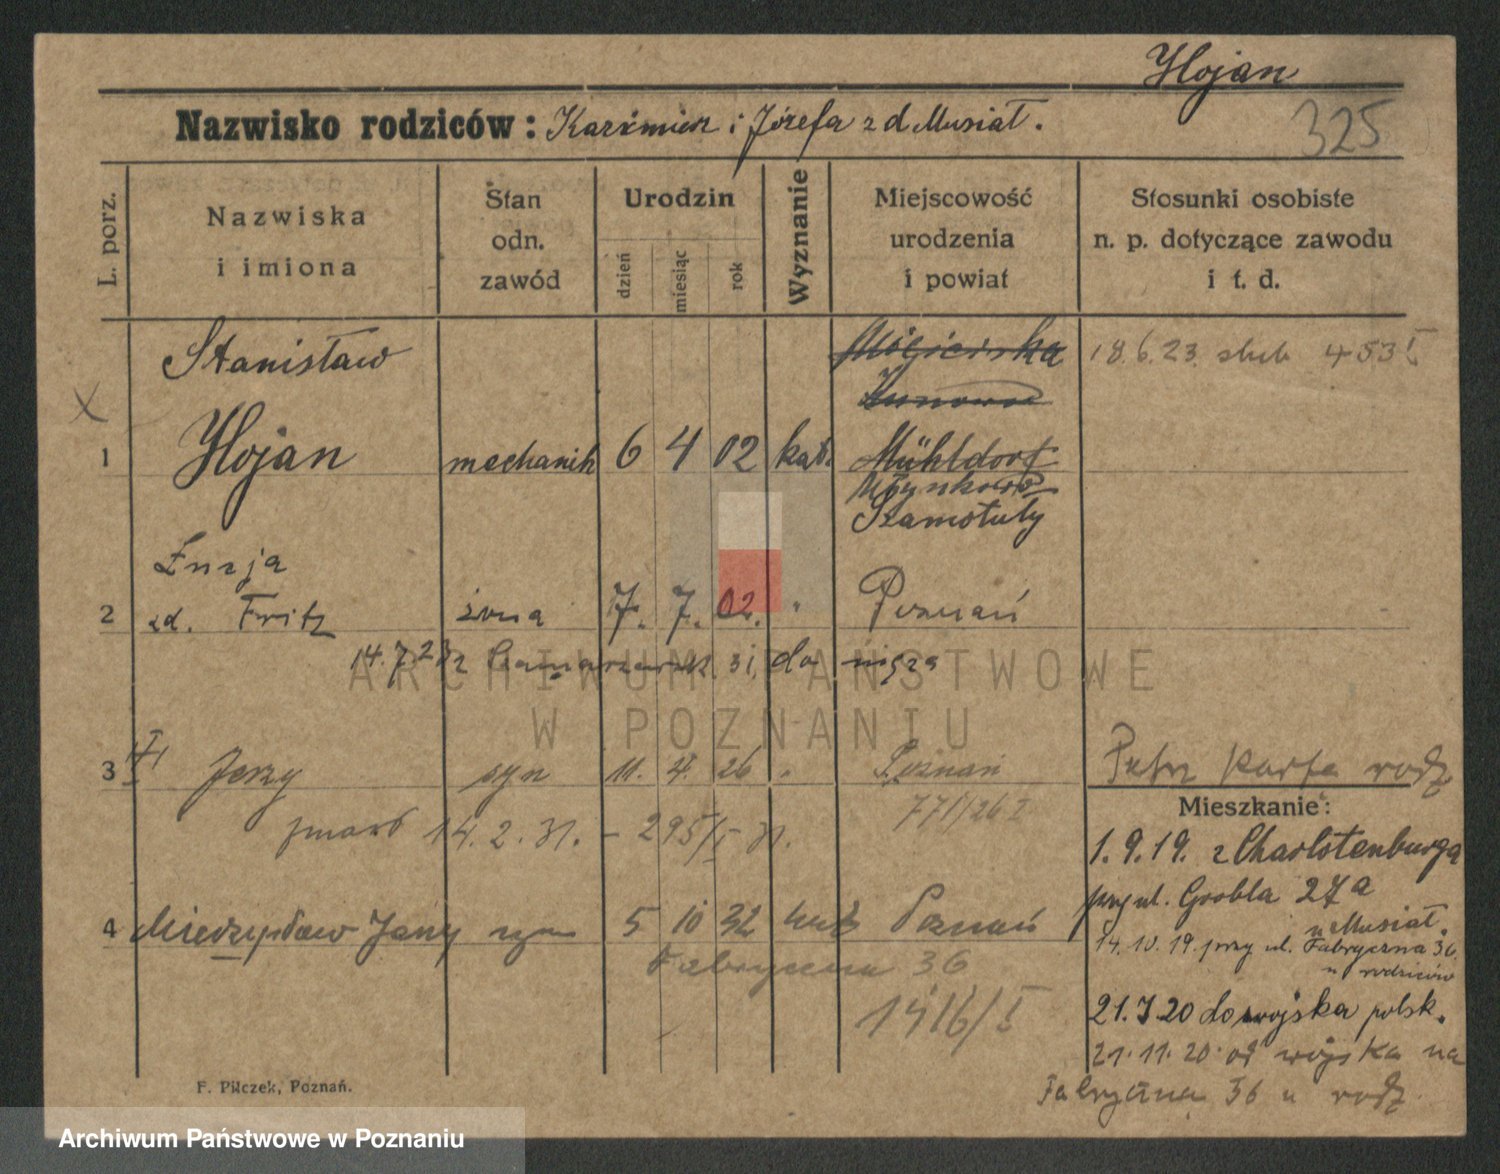 Hojan
325
Nazwisko rodziców: Kaźmierz i Józefa z d Musiał.
L. porz.
Nazwiska
i imiona
Stan
odn.
zawód
Urodzin
dzień
miesiąc
rok
Wyznanie
Miejscowość
urodzenia
i powiat
Stosunki osobiste
n. p. dotyczące zawodu
i t. d.
Stanisław
18.6.23. slub 453 I
1 Hojan mechanik 6 4 02 kat. Mühldorf
Młynkowo
Szamotuły
Łucja
2 zd. Fritz żona 7. 7. 02. " Poznań
14.7.23 z 31, do
3 Jerzy syn 11. 4. 26 " Poznań
zmarł 14.2.31. - 295/I 31.
Mieszkanie:
1.9.19. z Charlotenburga
przy ul. Grobla 27a
u Musiał.
4 Mieczysław Jerzy syn 5 10 32 kat Poznań
14.10.19. przy ul. Fabryczna 36.
u rodziców
Fabryczna 36
21.7.20 do wojska polsk.
21.11.20 od wojska na
Fabryczną 36 u rodz.
F. Pilczek, Poznań.
ARCHIWUM PAŃSTWOWE
W POZNANIU
Archiwum Państwowe w Poznaniu